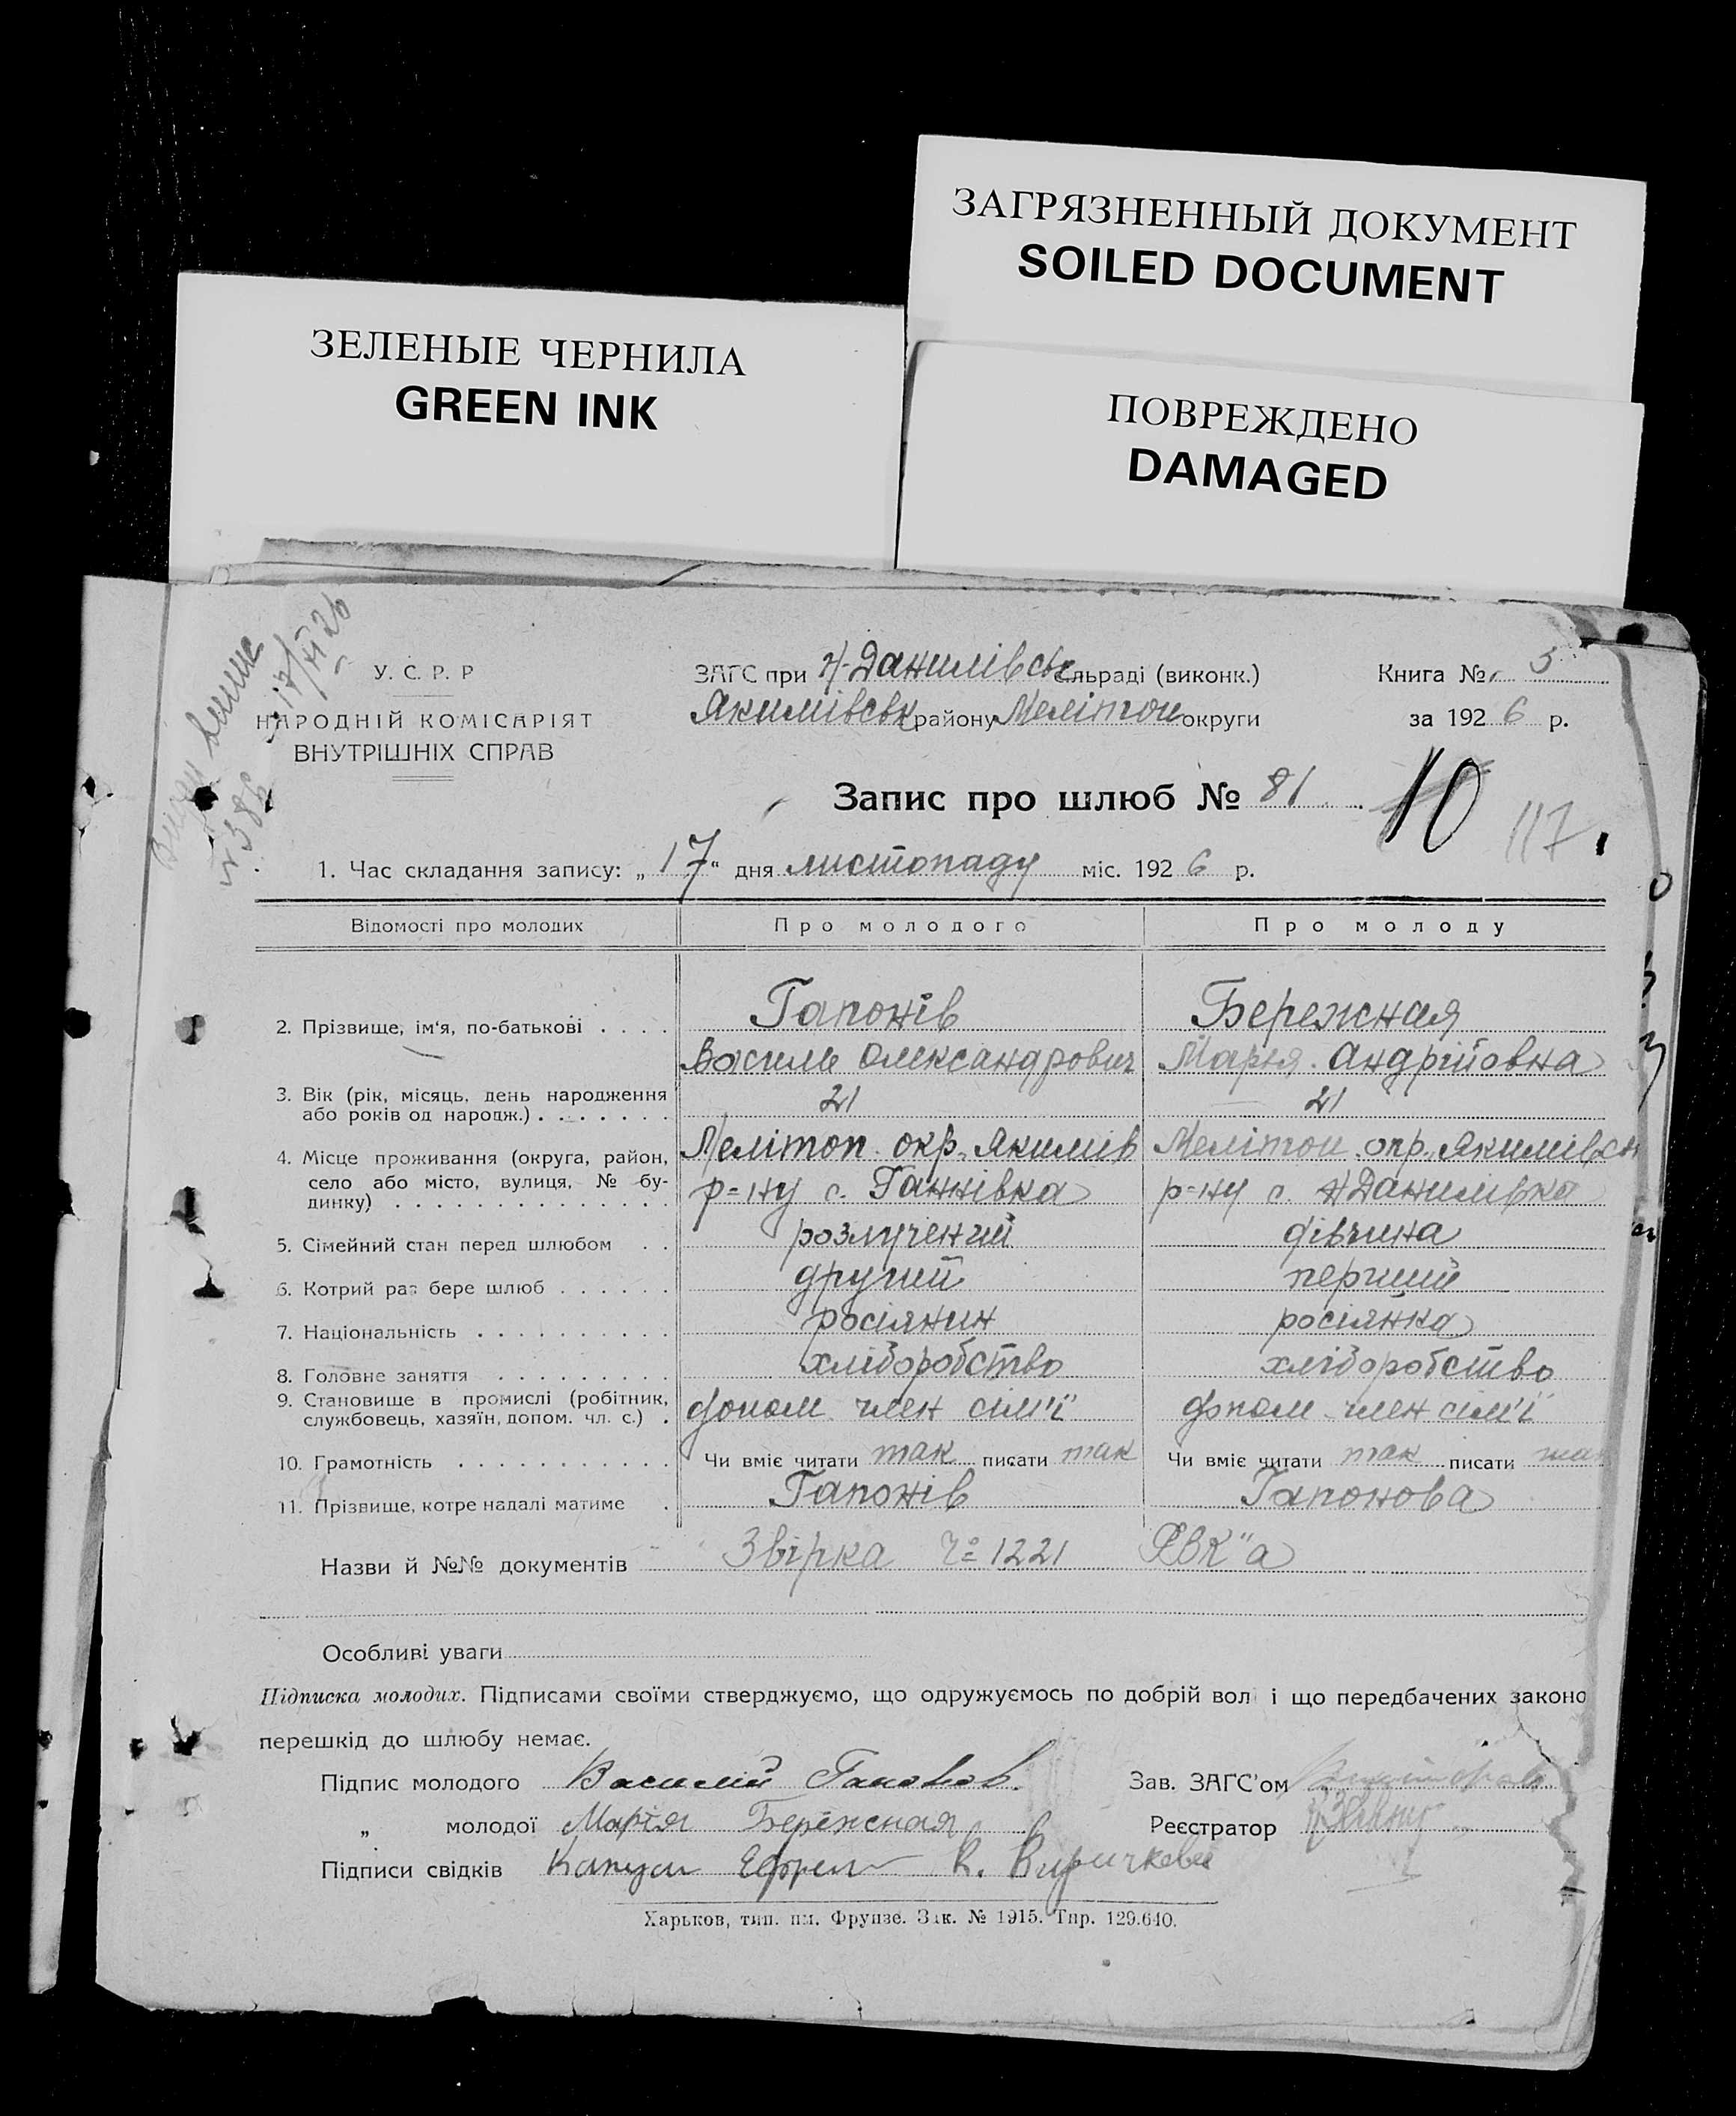 ЗАГРЯЗНЕННЫЙ ДОКУМЕНТ
SOILED DOCUMENT
ЗЕЛЕНЫЕ ЧЕРНИЛА
GREEN INK
ПОВРЕЖДЕНО
DAMAGED
17/XI 26
№ 386
У. С. Р. Р
НАРОДНІЙ КОМІСАРІЯТ
ВНУТРІШНІХ СПРАВ
ЗАГС при Н-Данилівськ сельраді (виконк.)
Якимівськ району Мелітоп округи
Книга № 3
за 192 6 р.
Запис про шлюб № 81 10 117
1. Час складання запису: „17“ дня листопаду міс. 192 6 р.
Відомості про молодих Про молодого Про молоду
2. Прізвище, ім'я, по-батькові . . . . Гапонів Бережная
Василь Олександрович Марія Андрійовна
3. Вік (рік, місяць, день народження
або років од народж.) . . . . . . . 21 21
4. Місце проживання (округа, район, Мелітоп. окр. Якимів Мелітоп. окр. Якимівськ
село або місто, вулиця, № бу- р=ну с. Ганнівка р=ну с. Н Данилівка
динку) . . . . . . . . . . . . . .
5. Сімейний стан перед шлюбом . . розлучений дівчина
6. Котрий раз бере шлюб . . . . . . другий перший
7. Національність . . . . . . . . . . росіянин росіянка
8. Головне заняття . . . . . . . . . хліборобство хліборобство
9. Становище в промислі (робітник,
службовець, хазяїн, допом. чл. с.) . допом. член сім'ї допом. член сім'ї
10. Грамотність . . . . . . . . . . . Чи вміє читати так писати так Чи вміє читати так писати так
11. Прізвище, котре надалі матиме . Гапонів Гапонова
Назви й №№ документів Звірка Ч= 1221 РВК"а
Особливі уваги
Підписка молодих. Підписами своїми стверджуємо, що одружуємось по добрій вол і що передбачених законо
перешкід до шлюбу немає.
Підпис молодого Василий Гапонов. Зав. ЗАГС'ом
„ молодої Марія Бережная Реєстратор
Підписи свідків Ефрем К.
Харьков, тип. им. Фрунзе. Зак. № 1915. Тир. 129.640.